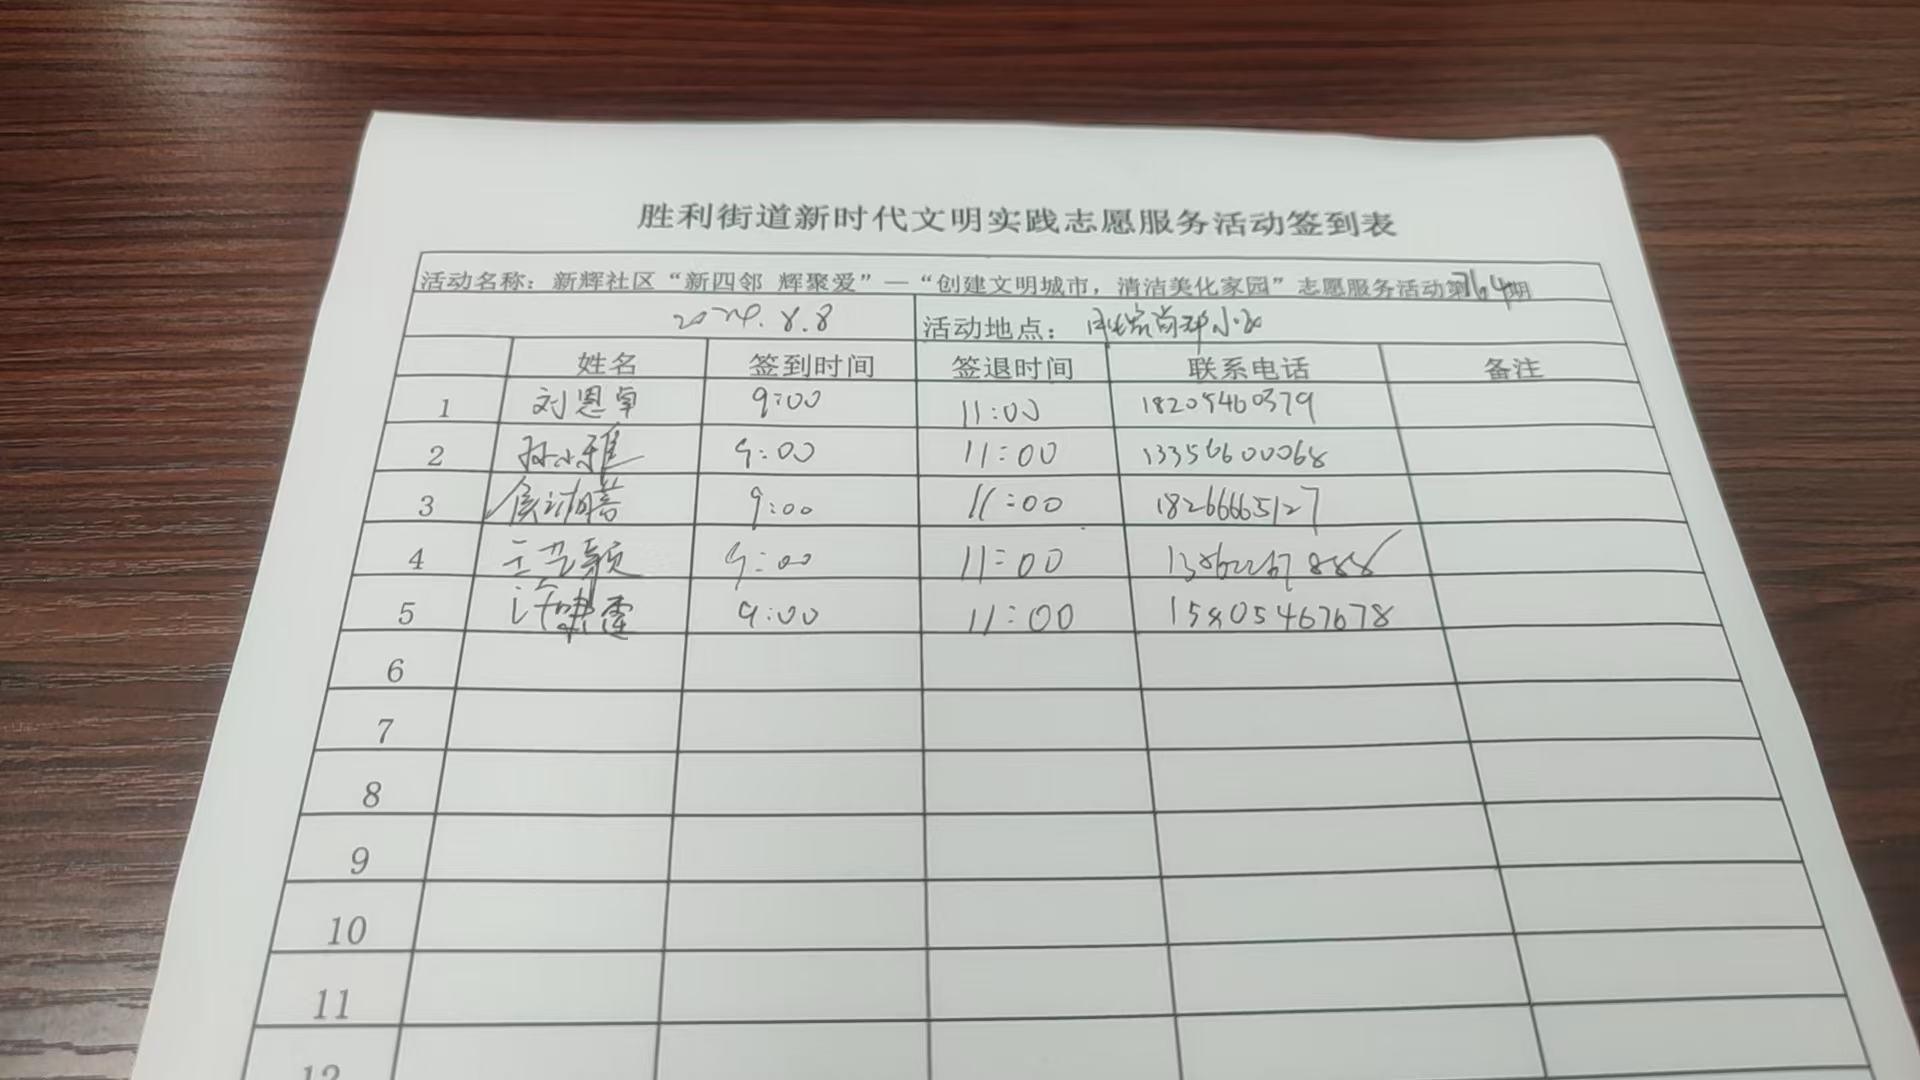 胜利街道新时代文明实践志愿服务活动签到表
活动名称：新辉社区“新四邻 辉聚爱”—“创建文明城市，清洁美化家园”志愿服务活动第764期
2024.8.8 活动地点：
姓名 签到时间 签退时间 联系电话 备注
1 刘恩卓 9:00 11:00 18205460379
2 孙小雅 9:00 11:00 13356600068
3 9:00 11:00 18266665127
4 王艺颖 9:00 11:00
5 许 霆 9:00 11:00 15805467678
6
7
8
9
10
11
12